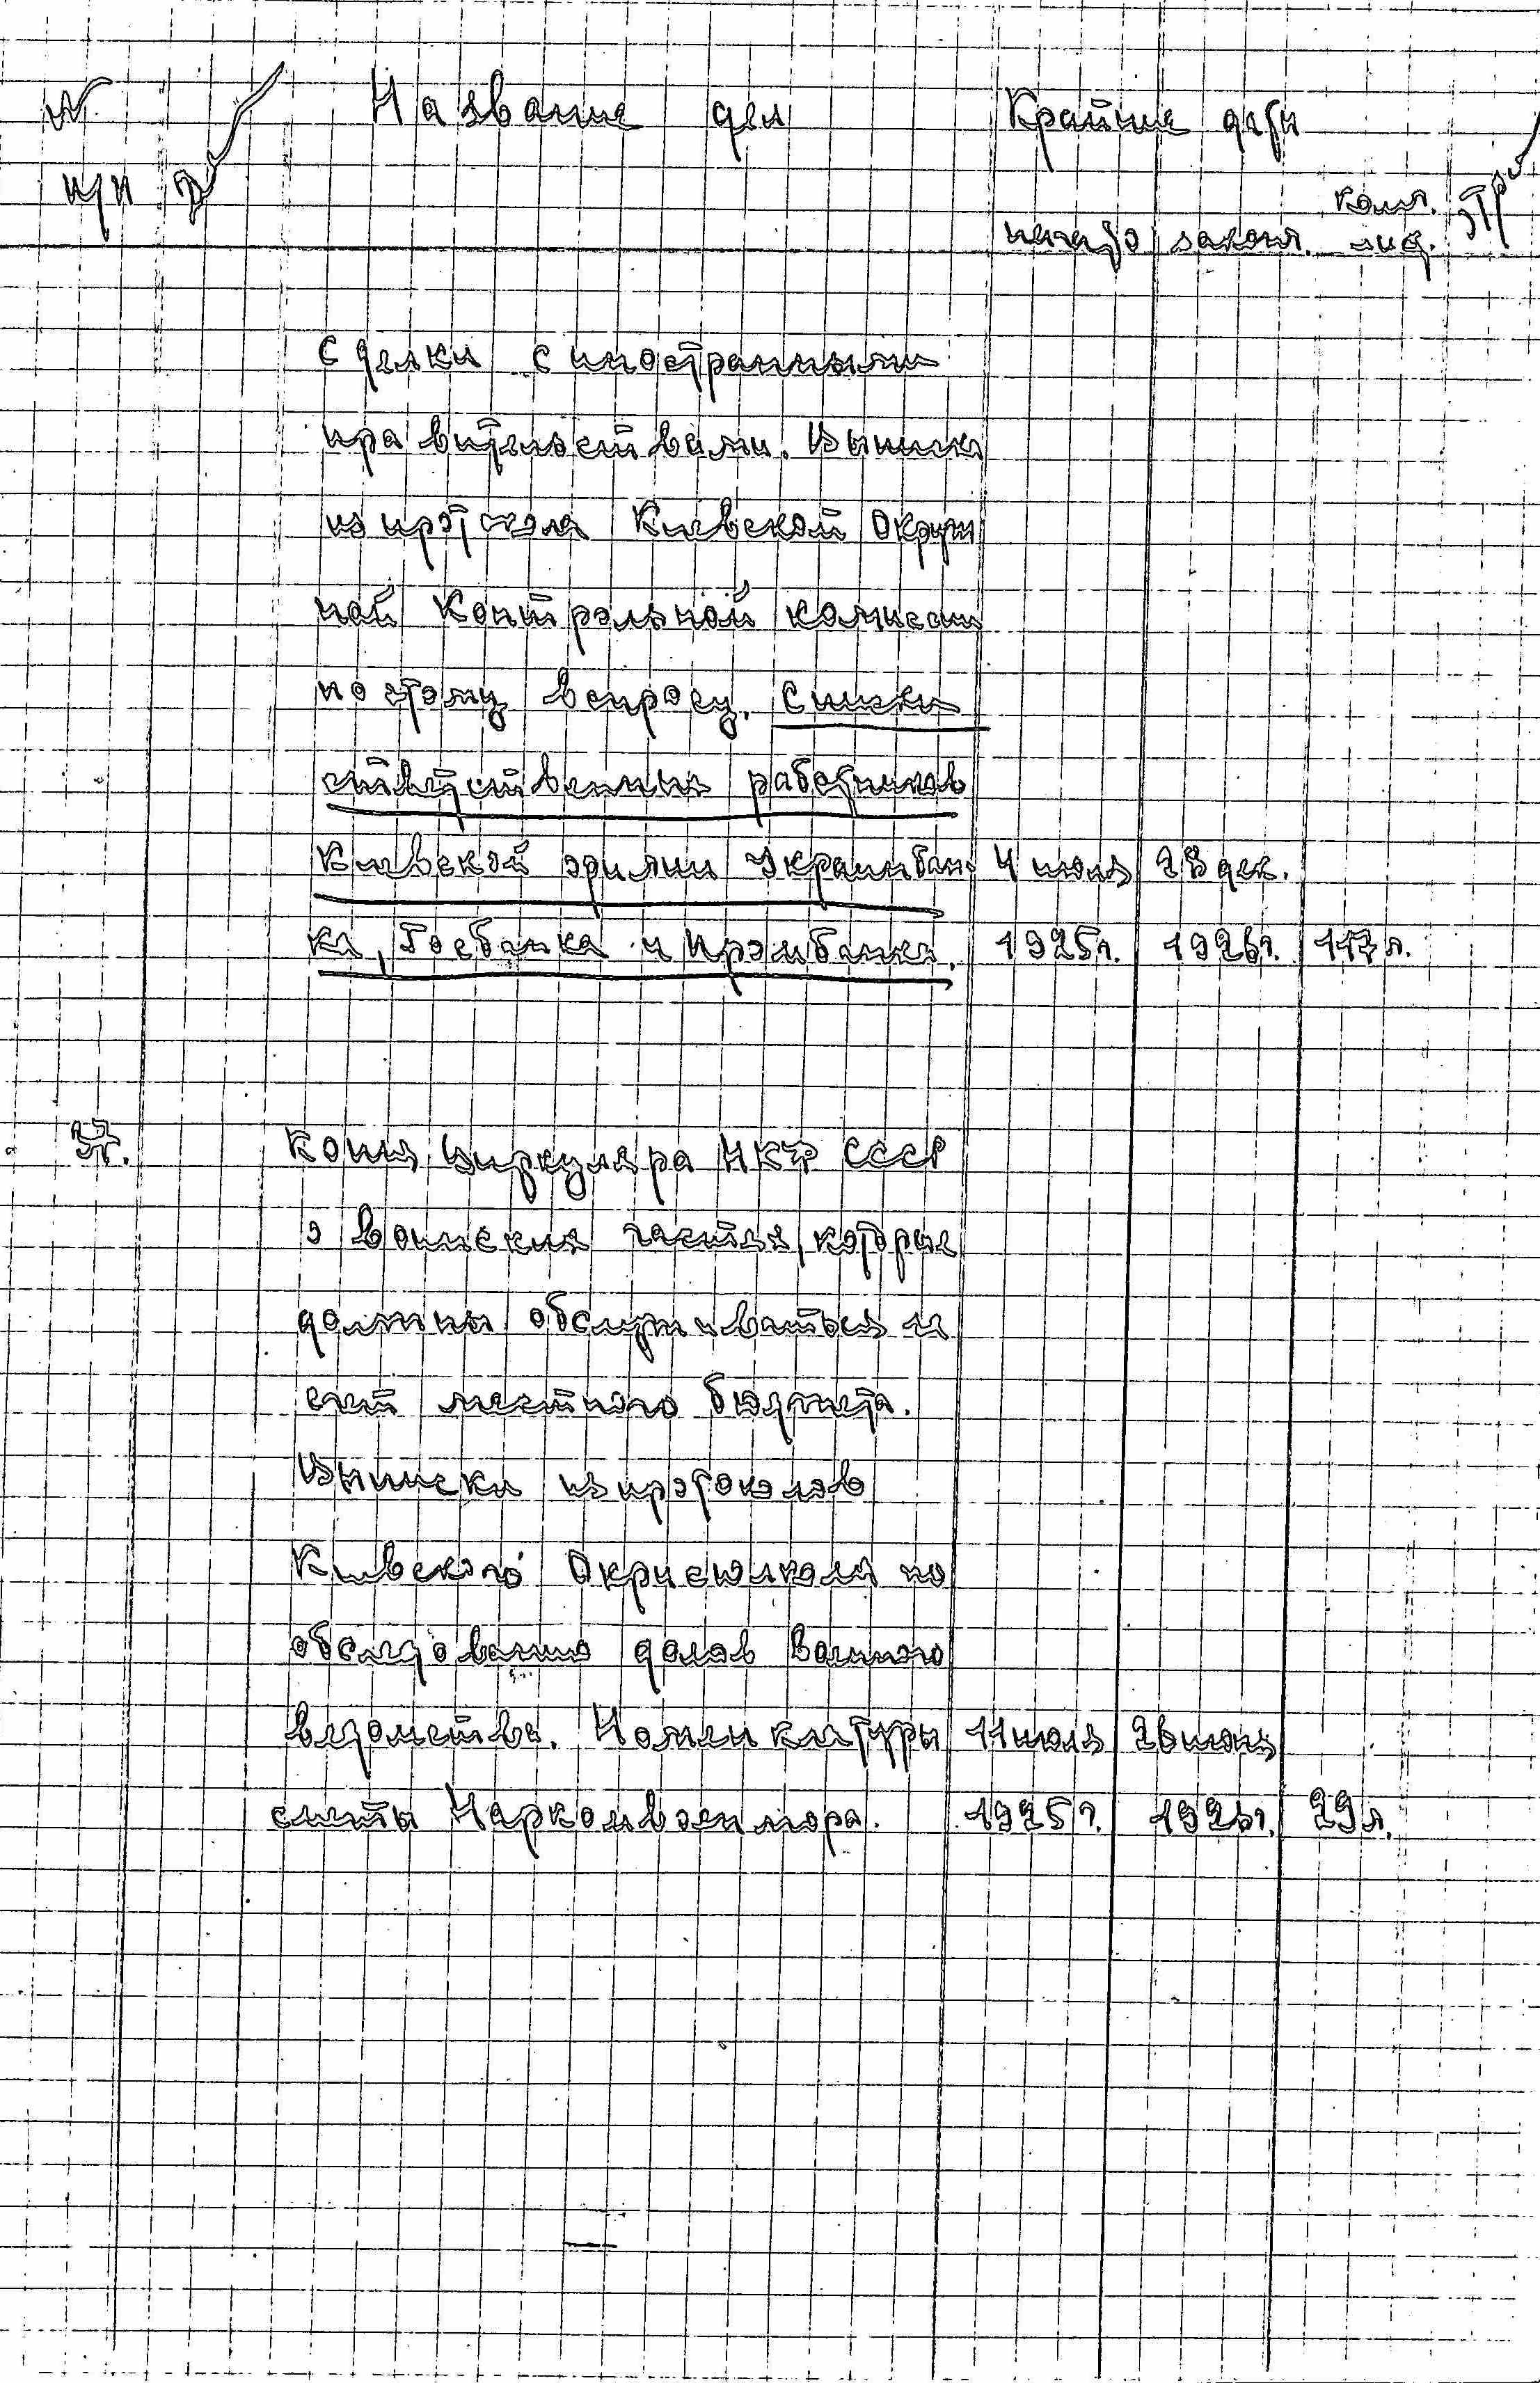 № Название дел Крайние даты
п/п колич.
начало законч. лист.
сделки с иностранными
правительствами. Выписка
из протокола Киевской Окруж
ной Контрольной комиссии
по этому вопросу. Списки
ответственных работников
Киевской филии Украинбан-
ка, Госбанка и Промбанка. 4 июля 1925г. 28 дек. 1926г. 117 л.
Копия циркуляра НКФ СССР
о воинских частях, которые
должны обслуживаться за
счет местного бюджета.
Выписки из протоколов
Киевского Окрисполкома по
обследованию домов военного
ведомства. Номенклатуры 11 июля 26 июня
сметы Наркомвоенмора. 1925г. 1926г. 29 л.